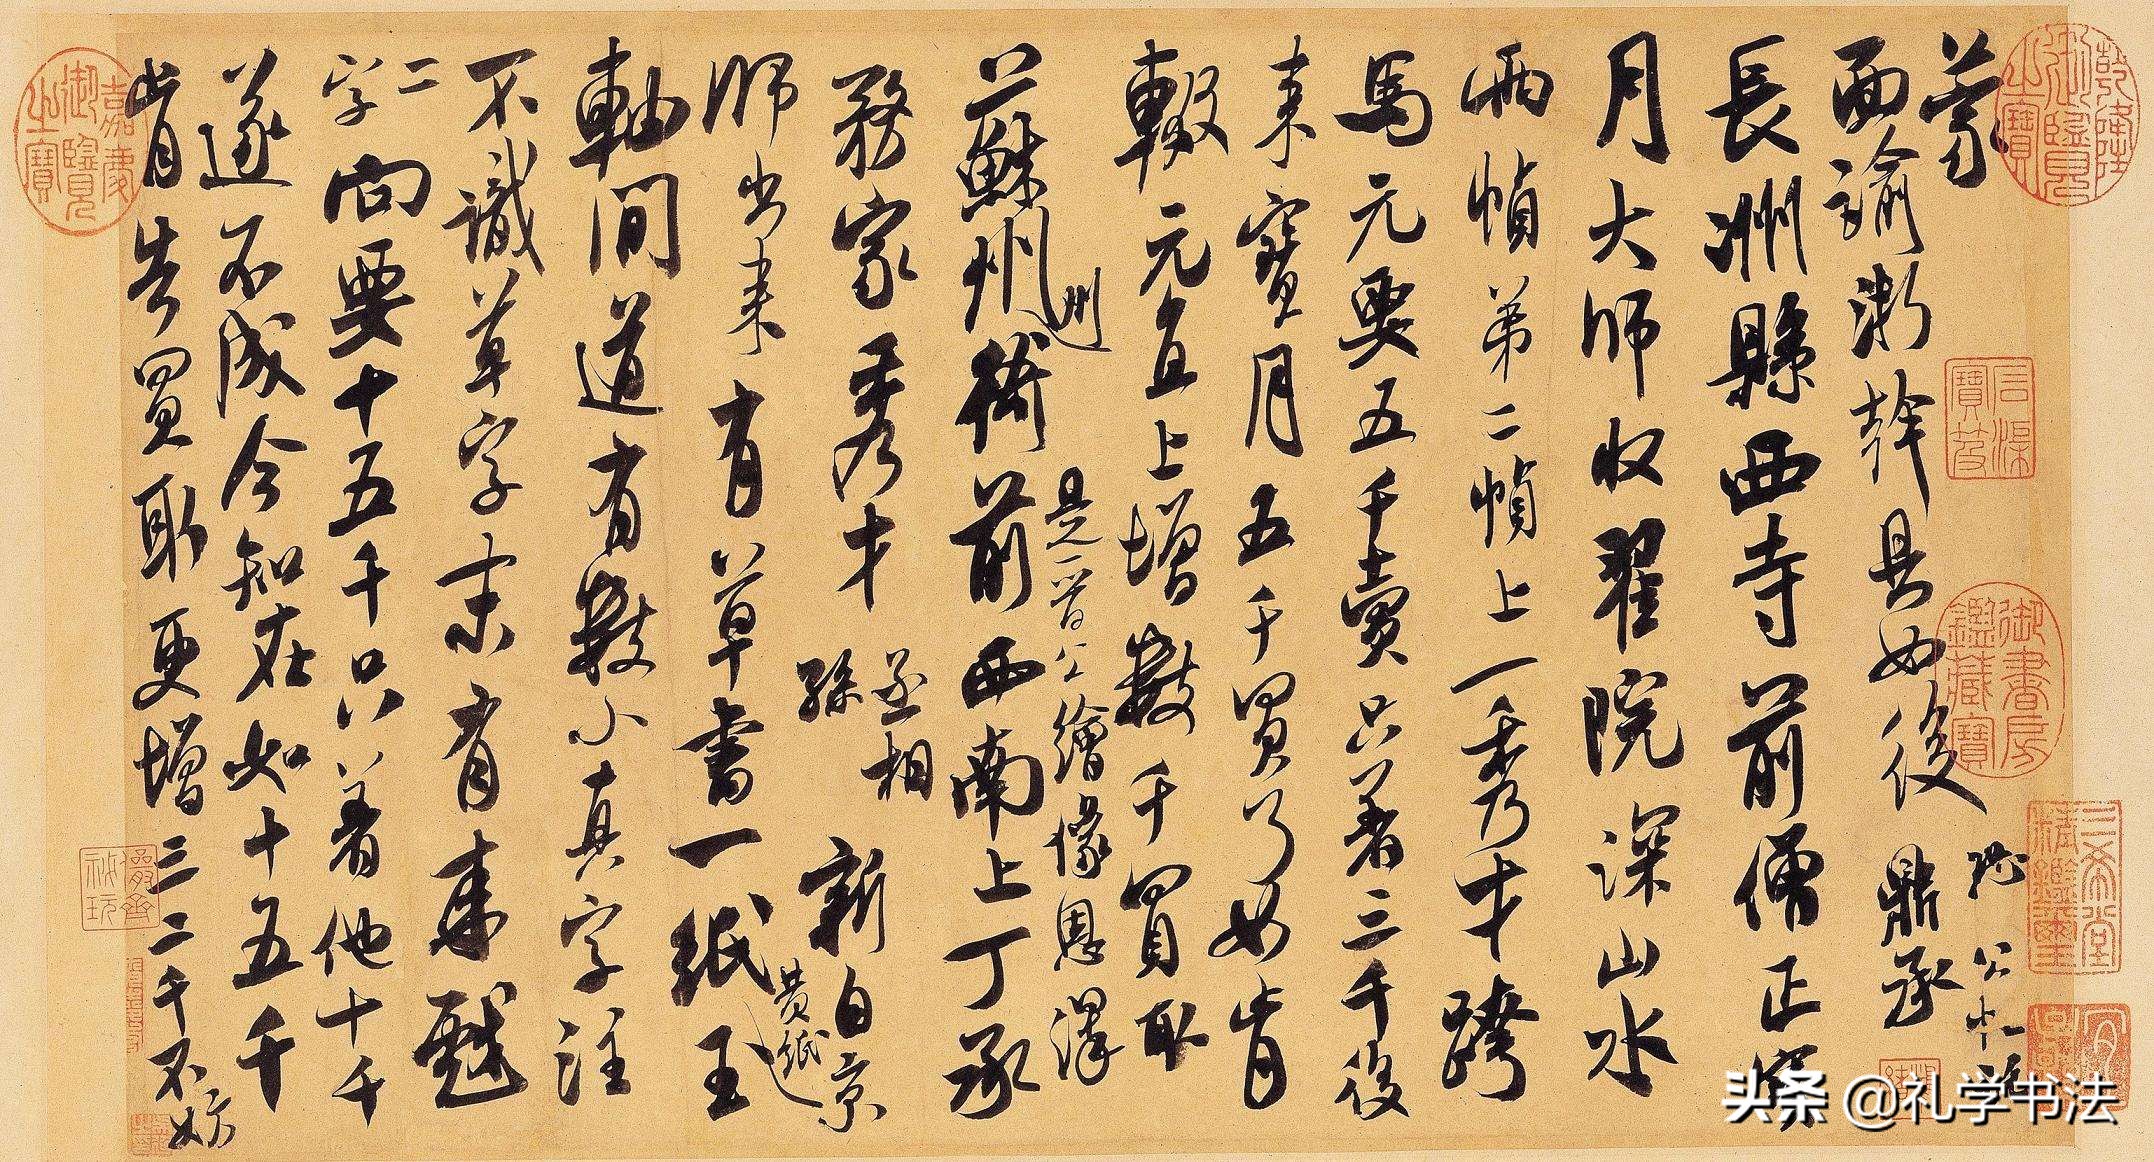 蒙
面諭浙幹具如後 鼎承
長洲縣西寺前僧正寶
月大師收翟院深山水
兩幀第二幀上一秀才跨
馬元要五千賣只著三千後
来寶月五千買了如肯
輟元直上增數千買取
蘇州衙前西南上丁承
州
是一晉公繪像恩澤
務家秀才丞相孫新自京
師出来有草書一紙黄紙玉
軸間道有數小真字注
不識草字末有来戬
二字向要十五千只著他十千
遂不成今知在如十五千
肯告買取更增三二千不妨
乾隆御覽之寶
石渠寶笈
御書房鑑藏寶
三希堂精鑑璽
嘉慶御覽之寶
头条 @礼学书法